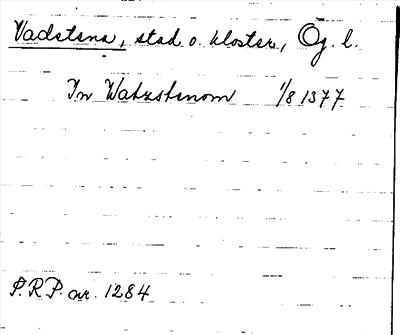 Vadstena, stad o. kloster, Ög. l.
In Watzstenom 1/8 1377
P.R.P. nr. 1284